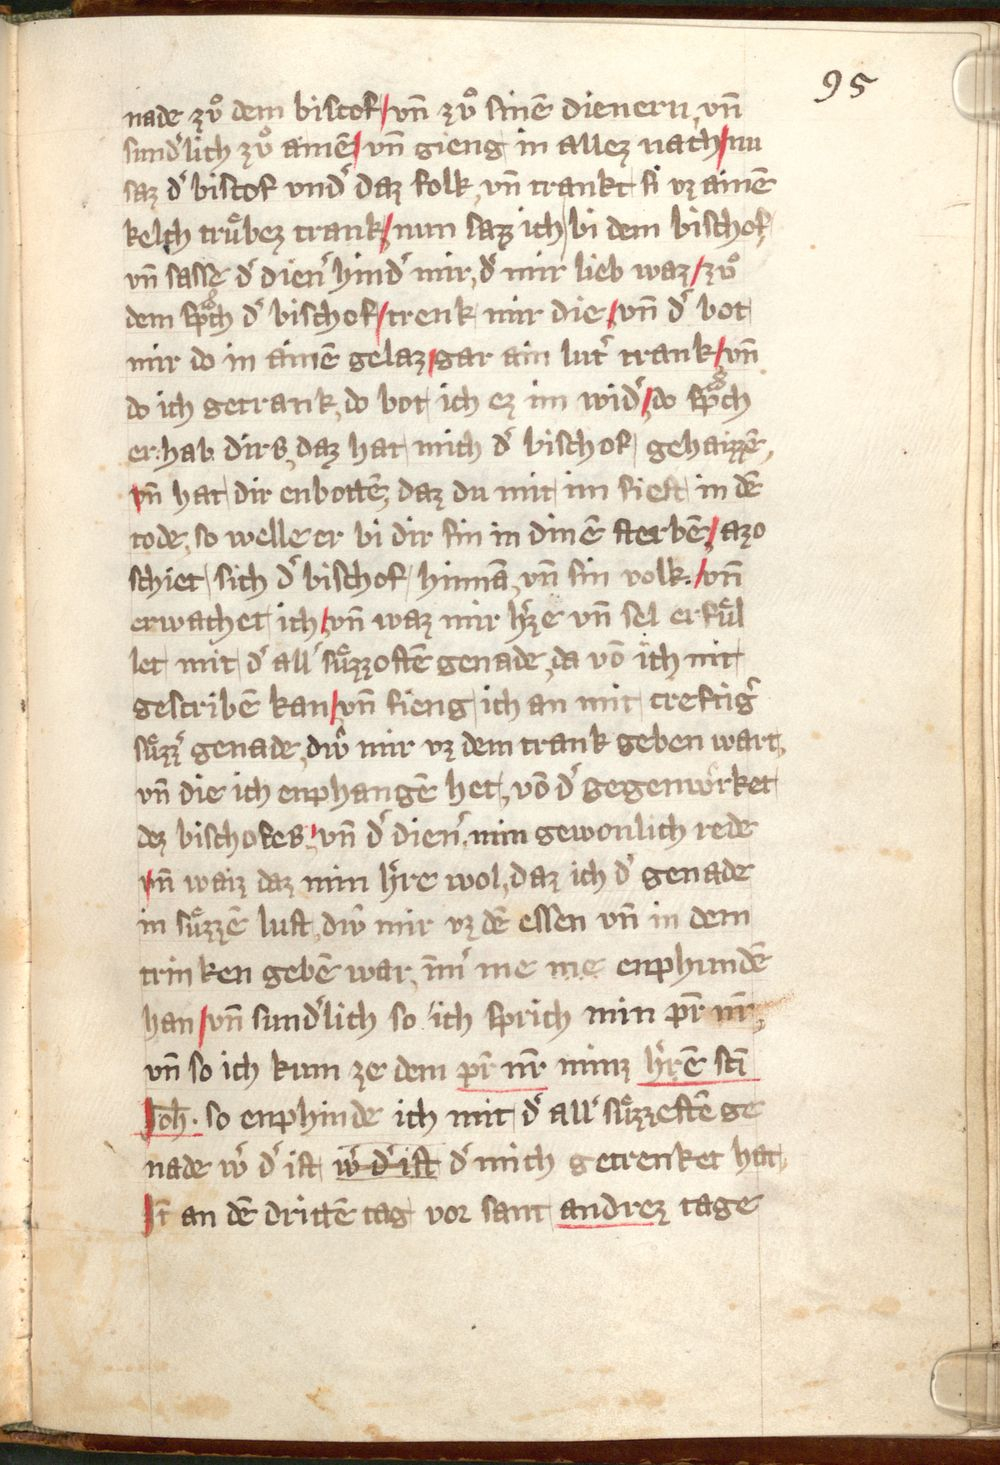 95
nade zuͦ dem biscof / vn̄ zuͦ sinē dienern, vn̄
sundˀlich zuͦ ainē / vn̄ gieng in allez nach / nu
saz dˀ biscof vndˀ daz folk, vn̄ trankt si vz ainē
kelch truͤbez trank / nun saz ich bi dem bischof,
vn̄ sasse dˀ dienˀ hindˀ mir, dˀ mir lieb waz / zuͦ
dem spͣch dˀ bischof / trenk mir die / vn̄ dˀ bot
mir do in ainē gelaz / gar ain lutˀ trank / vn̄
do ich getrank, do bot ich ez im widˀ / do spͣch
er. hab dirs, daz hat mich dˀ bischof gehaizzē,
vn̄ hat dir enbottē, daz du mit im siest in dē
tode, so welle er bi dir sin in dinē sterbē / azo
schiet sich dˀ bischof hinnā, vn̄ sin volk. / vn̄
erwachet ich / vn̄ waz mir hˀze vn̄ sel erfuͤl
let mit dˀ allˀ suͤzzostē genade, da vō ich nit
gescribē kan / vn̄ fieng ich an mit creftigˀ
suͤzzˀ genade, diŵ mir vz dem trank geben wart,
vn̄ die ich enphangē het, vō dˀ gegenwˀrket
dez bischofes / vn̄ dˀ dienˀ. min gewonlich rede
vn̄ waiz daz min hˀre wol, daz ich dˀ genade
in suͤzzē lust, diŵ mir vz dē essen vn̄ in dem
trinken gebē war, im̄ˀ me me enphundē
han / vn̄ sundˀlich so ich sprich min pr̄ nr̄,
vn̄ so ich kum ze dem pr̄ nr̄ minz hˀrē sc̄i
Joh̄. so enphinde ich mit dˀ allˀ suͤzzestē ge
nade wˀ dˀ ist wˀ dˀ ist dˀ mich getrenket hat,
It̄ an dē drittē tag vor sant andrez tage